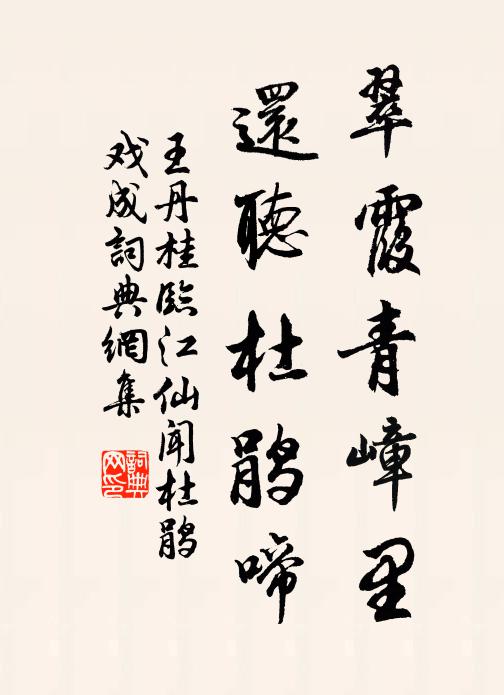 翠霞青嶂里
還聽杜鹃啼
王丹桂臨江仙闻杜鹃
戏成詞典網集
詞典网印